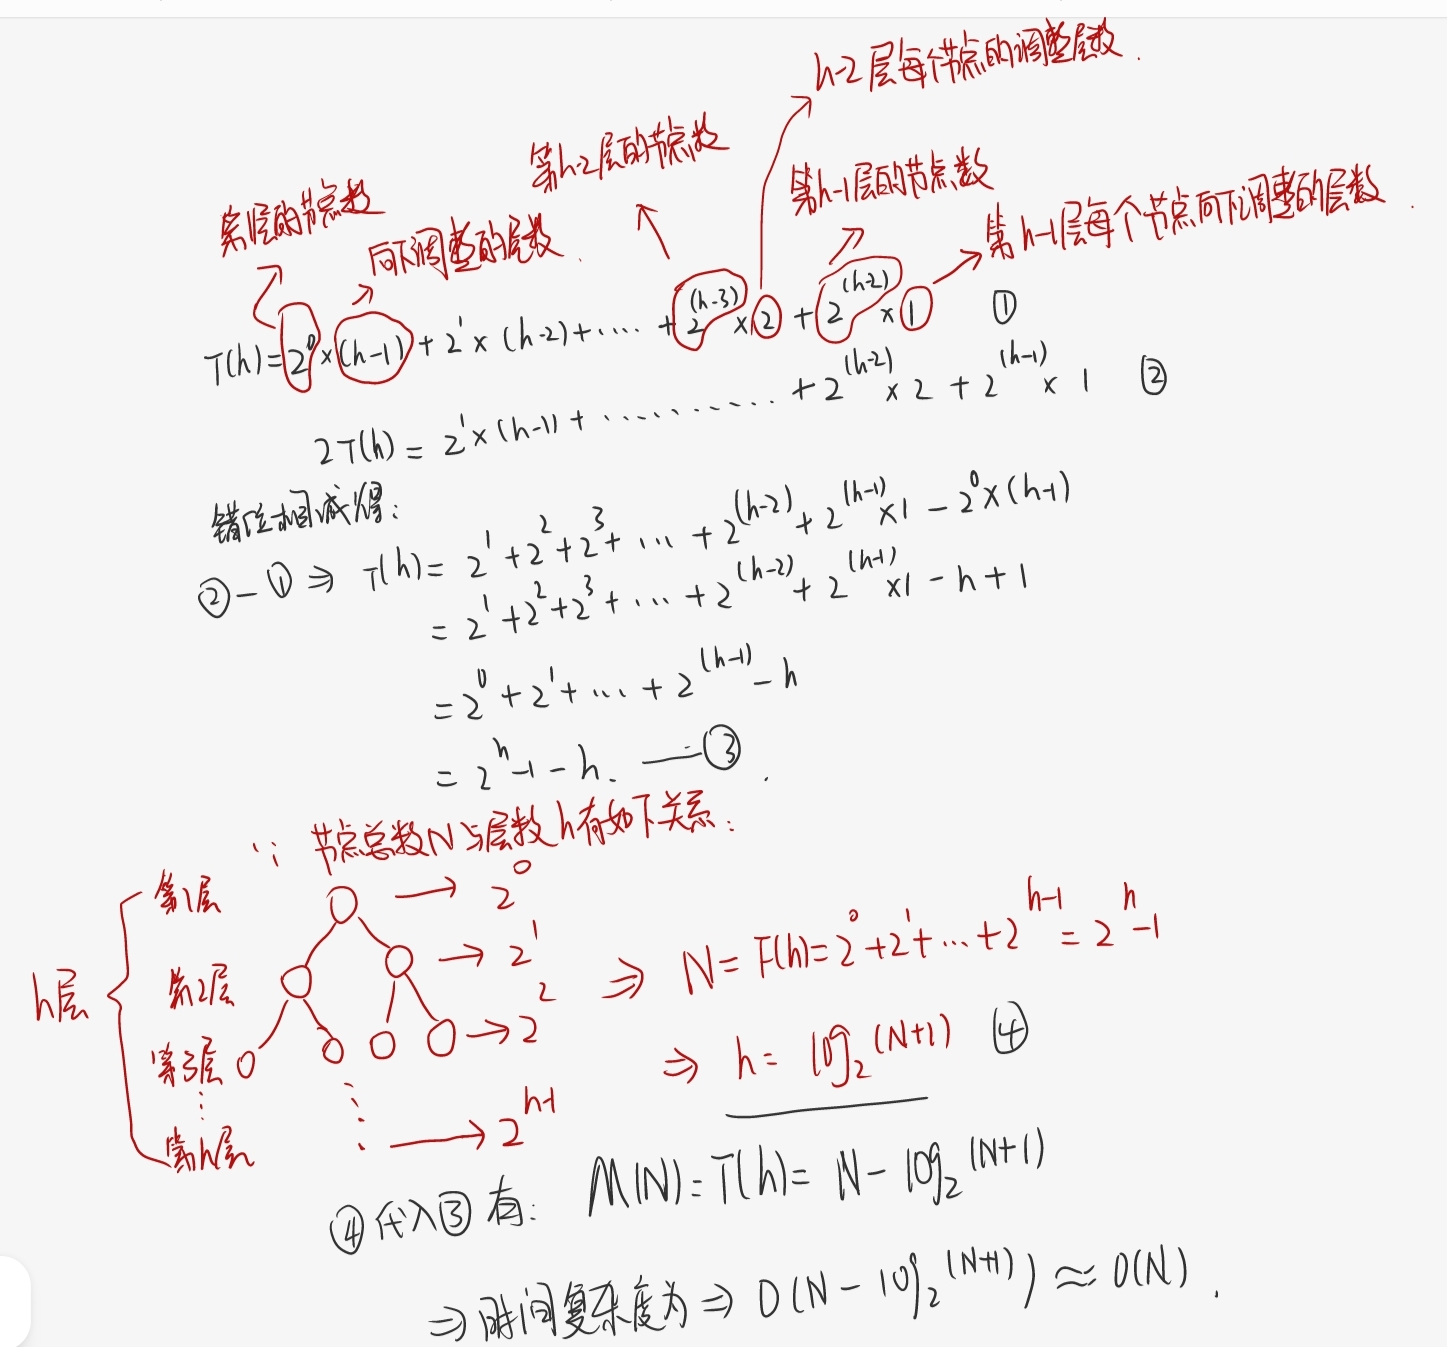 h-2层每个节点的调整层数.
第h-2层的节点数
第h-1层的节点数
第1层的节点数
向下调整的层数.
第h-1层每个节点向下调整的层数.
T(h)=2^0×(h-1)+2^1×(h-2)+....+2^(h-3)×2+2^(h-2)×1 ①
2T(h)=2^1×(h-1)+..........+2^(h-2)×2+2^(h-1)×1 ②
错位相减得:
②-①⇒ T(h)=2^1+2^2+2^3+...+2^(h-2)+2^(h-1)×1-2^0×(h-1)
=2^1+2^2+2^3+...+2^(h-2)+2^(h-1)×1-h+1
=2^0+2^1+...+2^(h-1)-h
=2^h-1-h. —③.
∵ 节点总数N与层数h有如下关系:
第1层 → 2^0
第2层 → 2^1
h层
第3层 → 2^2
⋮ ⋮
第h层 → 2^h-1
⇒ N=F(h)=2^0+2^1+...+2^h-1=2^h-1
⇒ h=log₂(N+1) ④
④代入③有: M(N)=T(h)=N-log₂(N+1)
⇒时间复杂度为⇒O(N-log₂(N+1))≈O(N).